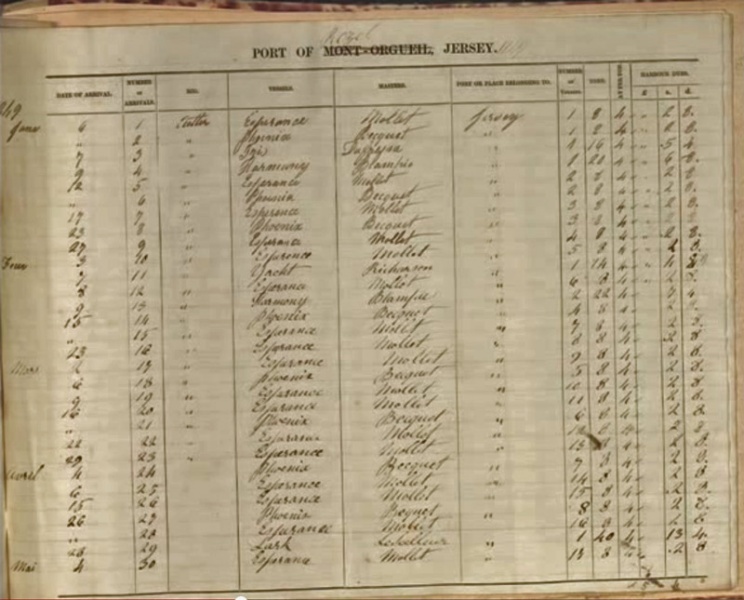 PORT OF MONT-ORGUEIL, JERSEY.
DATE OF ARRIVAL. NUMBER OF ARRIVALS. RIG. VESSELS. MASTERS. PORT OR PLACE BELONGING TO. NUMBER of Voyages. TONS. AT PER TON. HARBOUR DUES.
£ s. d.
6 1 Cutter Esperance Mollet Jersey 1 8 4 " 2 8
" 2 " Phoenix Becquet " 1 8 4 " 2 8
7 3 " " 1 16 4 " 5 4
9 4 " Harmony " 1 20 4 " 6 8
12 5 " Esperance Mollet " 2 8 4 " 2 8
" 6 " Phoenix Becquet " 2 8 4 " 2 8
17 7 " Esperance Mollet " 3 8 4 " 2 8
23 8 " Phoenix Becquet " 3 8 4 " 2 8
27 9 " Esperance Mollet " 4 8 4 " 2 8
3 10 " Esperance Mollet " 5 8 4 " 2 8
7 11 " Yacht Richardson " 1 14 4 " 4 8
8 12 " Esperance Mollet " 6 8 4 " 2 8
9 13 " Harmony " 2 22 4 " 7 4
15 14 " Phoenix Becquet " 4 8 4 " 2 8
" 15 " Esperance Mollet " 7 8 4 " 2 8
23 16 " Esperance Mollet " 8 8 4 " 2 8
Mars 2 17 " Esperance Mollet " 9 8 4 " 2 8
6 18 " Phoenix Becquet " 5 8 4 " 2 8
9 19 " Esperance Mollet " 10 8 4 " 2 8
16 20 " Esperance Mollet " 11 8 4 " 2 8
" 21 " Phoenix Becquet " 6 8 4 " 2 8
22 22 " Esperance Mollet " 12 8 4 " 2 8
29 23 " Esperance Mollet " 13 8 4 " 2 8
Avril 4 24 Phoenix Becquet " 7 8 4 " 2 8
6 25 Esperance Mollet " 14 8 4 " 2 8
15 26 Esperance Mollet " 15 8 4 " 2 8
26 27 Phoenix Becquet " 8 8 4 " 2 8
" 28 Esperance Mollet " 16 8 4 " 2 8
28 29 Lark " 1 40 4 " 13 4
Mai 4 30 Esperance Mollet " 8 4 " 2 8